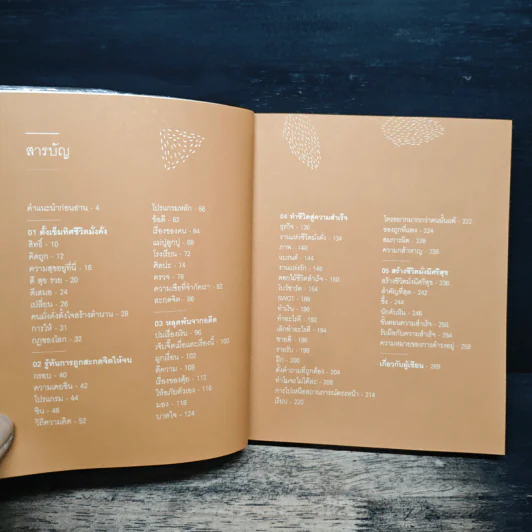 สารบัญ
คำแนะนำก่อนอ่าน - 4
01 ตั้งเข็มทิศชีวิตมั่งคั่ง
สิทธิ์ - 10
คิดถูก - 12
ความสุขอยู่ที่นี่ - 16
ดี สุข รวย - 20
ดีเสมอ - 24
เปลี่ยน - 26
มั่งคั่งตั้งใจสร้างตำนาน - 28
การให้ - 31
กฎของโลก - 32
02 รู้ทันการถูกสะกดจิตให้จน
กรอบ - 40
ความเคยชิน - 42
โปรแกรม - 44
ชิน - 48
วิถีความคิด - 52
โปรแกรมหลัก - 56
ข้อดี - 62
เรื่องของคน - 64
แม่ปูลูกปู - 68
โรงเรียน - 72
ศิลปะ - 74
ตรวจ - 78
ความเชื่อที่จำกัดเรา - 82
สะกดจิต - 86
03 หลุดพ้นจากอดีต
ปมเรื่องเงิน - 96
เจ็บจี๊ดเมื่อแตะเรื่องนี้ - 100
ผูกเรื่อง - 102
ตีความ - 108
เรื่องของตุ้ย - 112
ให้อภัยตัวเอง - 116
มอง - 118
บาดใจ - 124
04 ทำชีวิตสู่ความสำเร็จ
ธุรกิจ - 130
งานแห่งชีวิตมั่งคั่ง - 134
ภาพ - 140
แบรนด์ - 144
งานแห่งรัก - 148
ดอกไม้ชีวิตสำเร็จ - 160
โบว์ชาร์ด - 160
SWOT - 166
ทำเงิน - 180
ทำอะไรดี - 188
เลิกทำอะไรดี - 194
ขายดี - 198
รายรับ - 198
ฝึก - 206
ตั้งคำถามที่ถูกต้อง - 204
ทำไมจะไม่ได้ล่ะ - 206
การไปเหนือสถานการณ์ตรงหน้า - 214
เงียบ - 220
ใครอยากมากกว่าคนนั้นแพ้ - 222
ของถูกที่แพง - 224
สมการผิด - 228
ความกล้าหาญ - 236
05 สร้างชีวิตมั่งมีศรีสุข
สร้างชีวิตมั่งมีศรีสุข - 236
สำคัญที่สุด - 242
ซึ้ง - 244
นักดับฝัน - 246
ขั้นตอนความสำเร็จ - 256
รับมือกับความสำเร็จ - 264
ความหมายของการดำรงอยู่ - 268
เกี่ยวกับผู้เขียน - 269